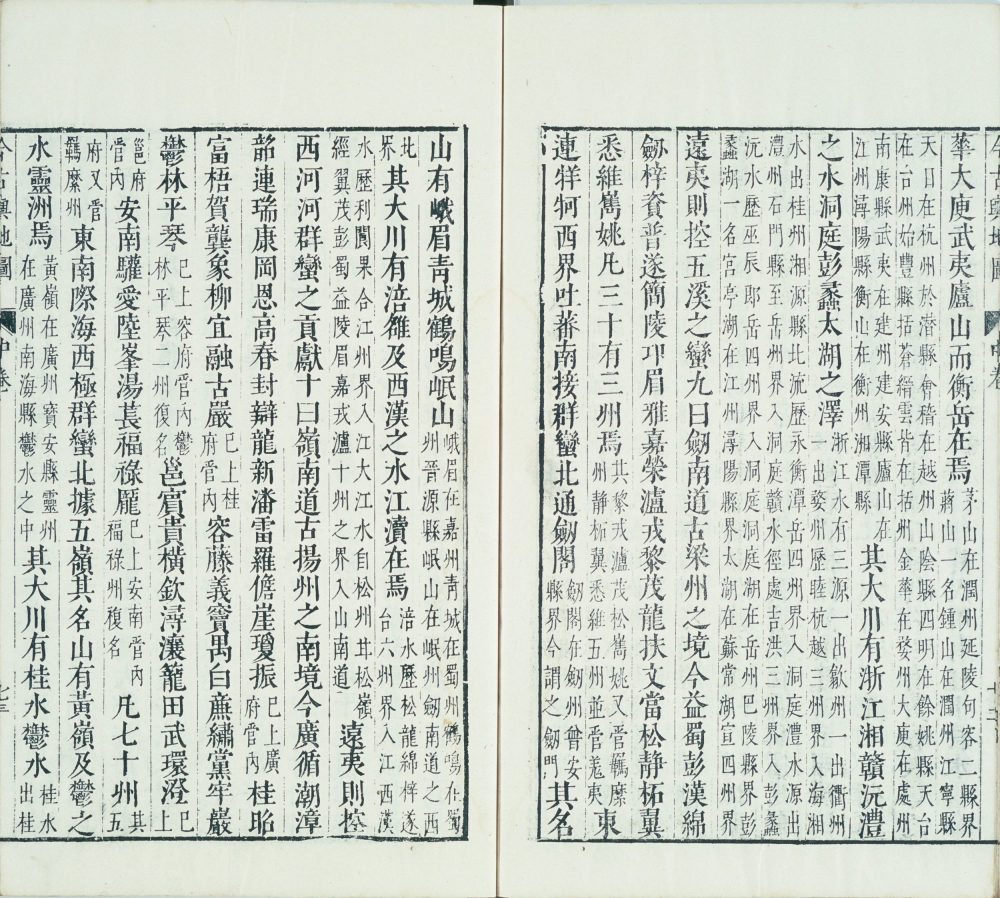 今古輿地圖 中卷
華大庾武夷廬山而衡岳在焉
茅山在潤州延陵句容二縣界
蔣山一名鍾山在潤州江寧縣
天目在杭州於潛縣會稽在越州山陰縣四明在餘姚縣天台
在台州始豐縣括蒼縉雲皆在括州金華在婺州大庾在處州
南康縣武夷在建州建安縣廬山在
江州潯陽縣衡山在衡州湘潭縣
其大川有浙江湘贛沅澧
之水洞庭彭蠡太湖之澤
浙江水有三源一出歙州一出衢州
一出婺州歷睦杭越三州界入海湘
水出桂州湘源縣北流歷永衡潭岳四州界入洞庭澧水源出
澧州石門縣至岳州界入洞庭贛水經處吉洪三州界入彭蠡
沅水歷巫辰郎岳四州界入洞庭洞庭湖在岳州巴陵縣界彭
蠡湖一名宮亭湖在江州潯陽縣界太湖在蘇常湖宣四州界
遠夷則控五溪之蠻九曰劒南道古梁州之境今益蜀彭漢綿
劒梓資普遂簡陵卭眉雅嘉榮瀘戎黎茂龍扶文當松静柘翼
悉維嶲姚凡三十有三州焉
其黎戎瀘茂松嶲姚又管羈縻
州静柘翼悉維五州並管羌夷
東
連牂牁西界吐蕃南接群蠻北通劒閣
劒閣在劒州曾安
縣界今謂之劒門
其名
山有峨眉青城鶴鳴岷山
峨眉在嘉州青城在蜀州鶴鳴在蜀
州晉源縣岷山在岷州劒南道之西
北
界
其大川有涪雒及西漢之水江瀆在焉
涪水歷松龍綿梓遂
合六州界入江西漢
水歷利閬果合江州界入江大江水自松州茸松嶺
經翼茂彭蜀益陵眉嘉戎瀘十州之界入山南道
遠夷則控
西河河群蠻之貢獻十曰嶺南道古揚州之南境今廣循潮漳
韶連瑞康岡恩高春封辯龍新潘雷羅儋崖瓊振
已上廣
府管內
桂昭
富梧賀龔象柳宜融古嚴
已上桂
府管內
容藤義竇禺白廉繡黨牢嚴
鬱林平琴
已上容府管內鬱
林平琴二州復名
邕賓貴橫欽潯瀼籠田武環澄
已
上
邕府
管內
安南驩愛陸峯湯萇福祿龐
已上安南管內
福祿州復名
凡七十州
其
五
府又管
羈縻州
東南際海西極群蠻北據五嶺其名山有黃嶺及鬱之
水靈洲焉
黃嶺在廣州寶安縣靈州
在廣州南海縣鬱水之中
其大川有桂水鬱水
桂水
出桂
今古輿地圖 中卷 七十三